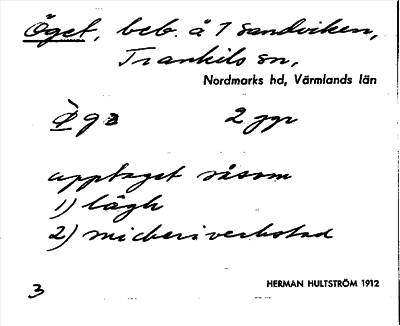 Öget, beb. å 7 Sandviken,
Trankils sn,
Nordmarks hd, Värmlands län
2 ggr
upptaget såsom
1) lägh
2) snickeriverkstad
3 HERMAN HULTSTRÖM 1912